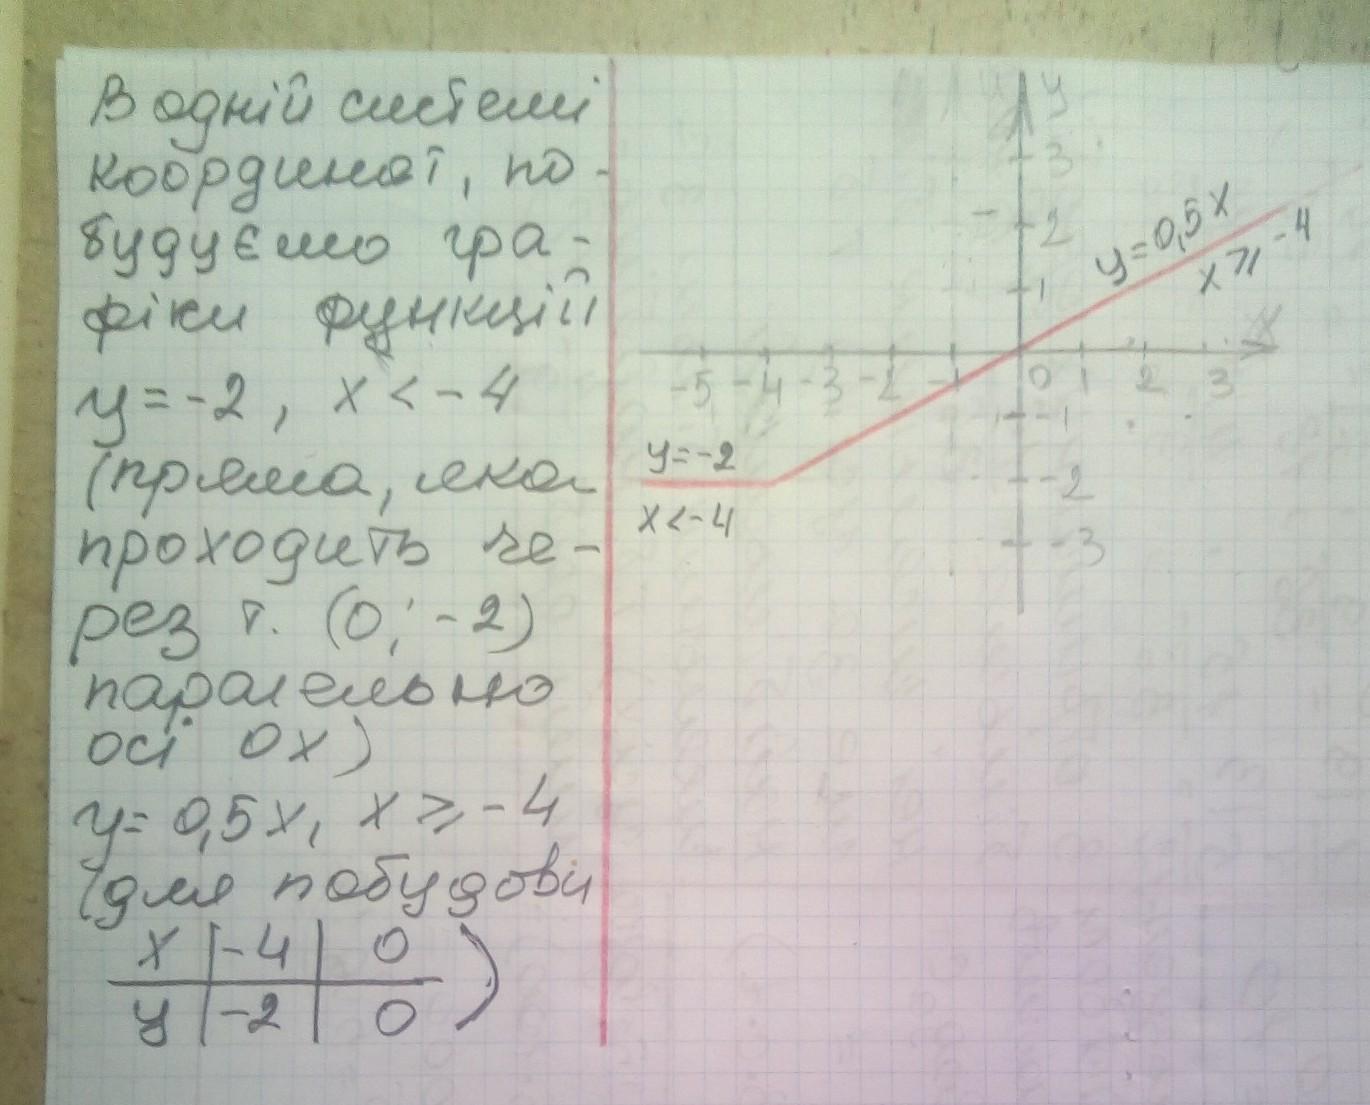 В одній системі
координат, по-
будуємо гра-
фіки функцій
y = -2, x < -4
(пряма, яка
проходить че-
рез т. (0; -2)
паралельно
осі OX)
y = 0,5x, x ⩾ -4
(для побудови
x | -4 | 0
y | -2 | 0 )
y
3
2
1
y = 0,5x
x ⩾ -4
x
-5 -4 -3 -2 -1 0 1 2 3
-1
-2
-3
y = -2
x < -4